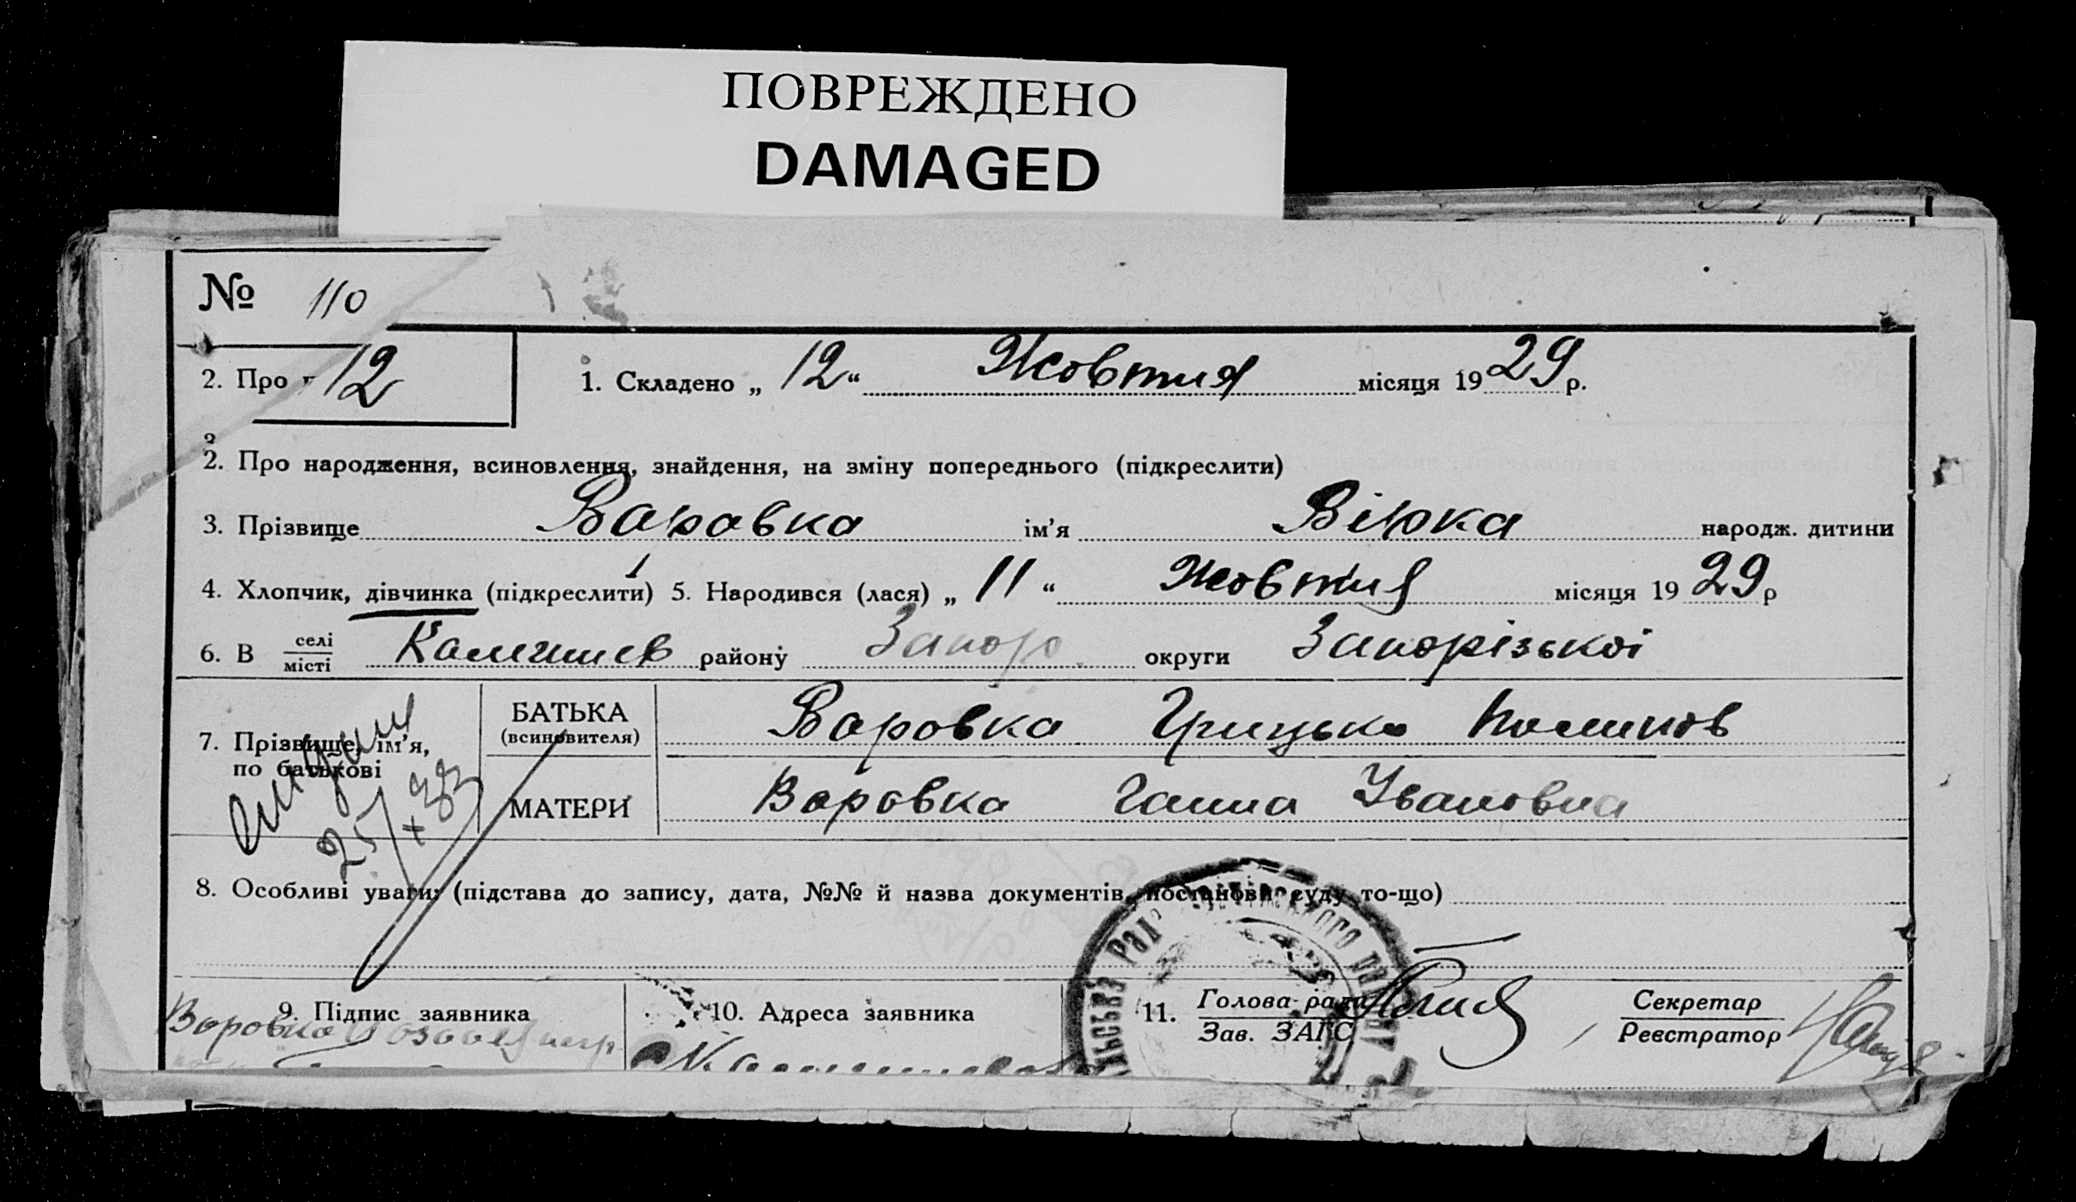 ПОВРЕЖДЕНО
DAMAGED
№ 110
2. Про 12
1. Складено „ 12 “ Жовтня місяця 1929 р.
2. Про народження, всиновлення, знайдення, на зміну попереднього (підкреслити)
3. Прізвище Варавка ім’я Вірка народж. дитини
4. Хлопчик, дівчинка (підкреслити) 5. Народився (лася) „ 11 “ Жовтня місяця 1929 р
6. В селі місті району Запоро. округи Запорізькоі
7. Прізвище, ім’я, по батькові
25/x 33
БАТЬКА (всиновителя) Варовка Грицько
МАТЕРИ Варовка Ганна Івановна
8. Особливі уваги: (підстава до запису, дата, №№ й назва документів, постанови суду то-що)
9. Підпис заявника
Варовка
10. Адреса заявника
11. Голова ради
Зав. ЗАГС
Секретар
Реєстратор